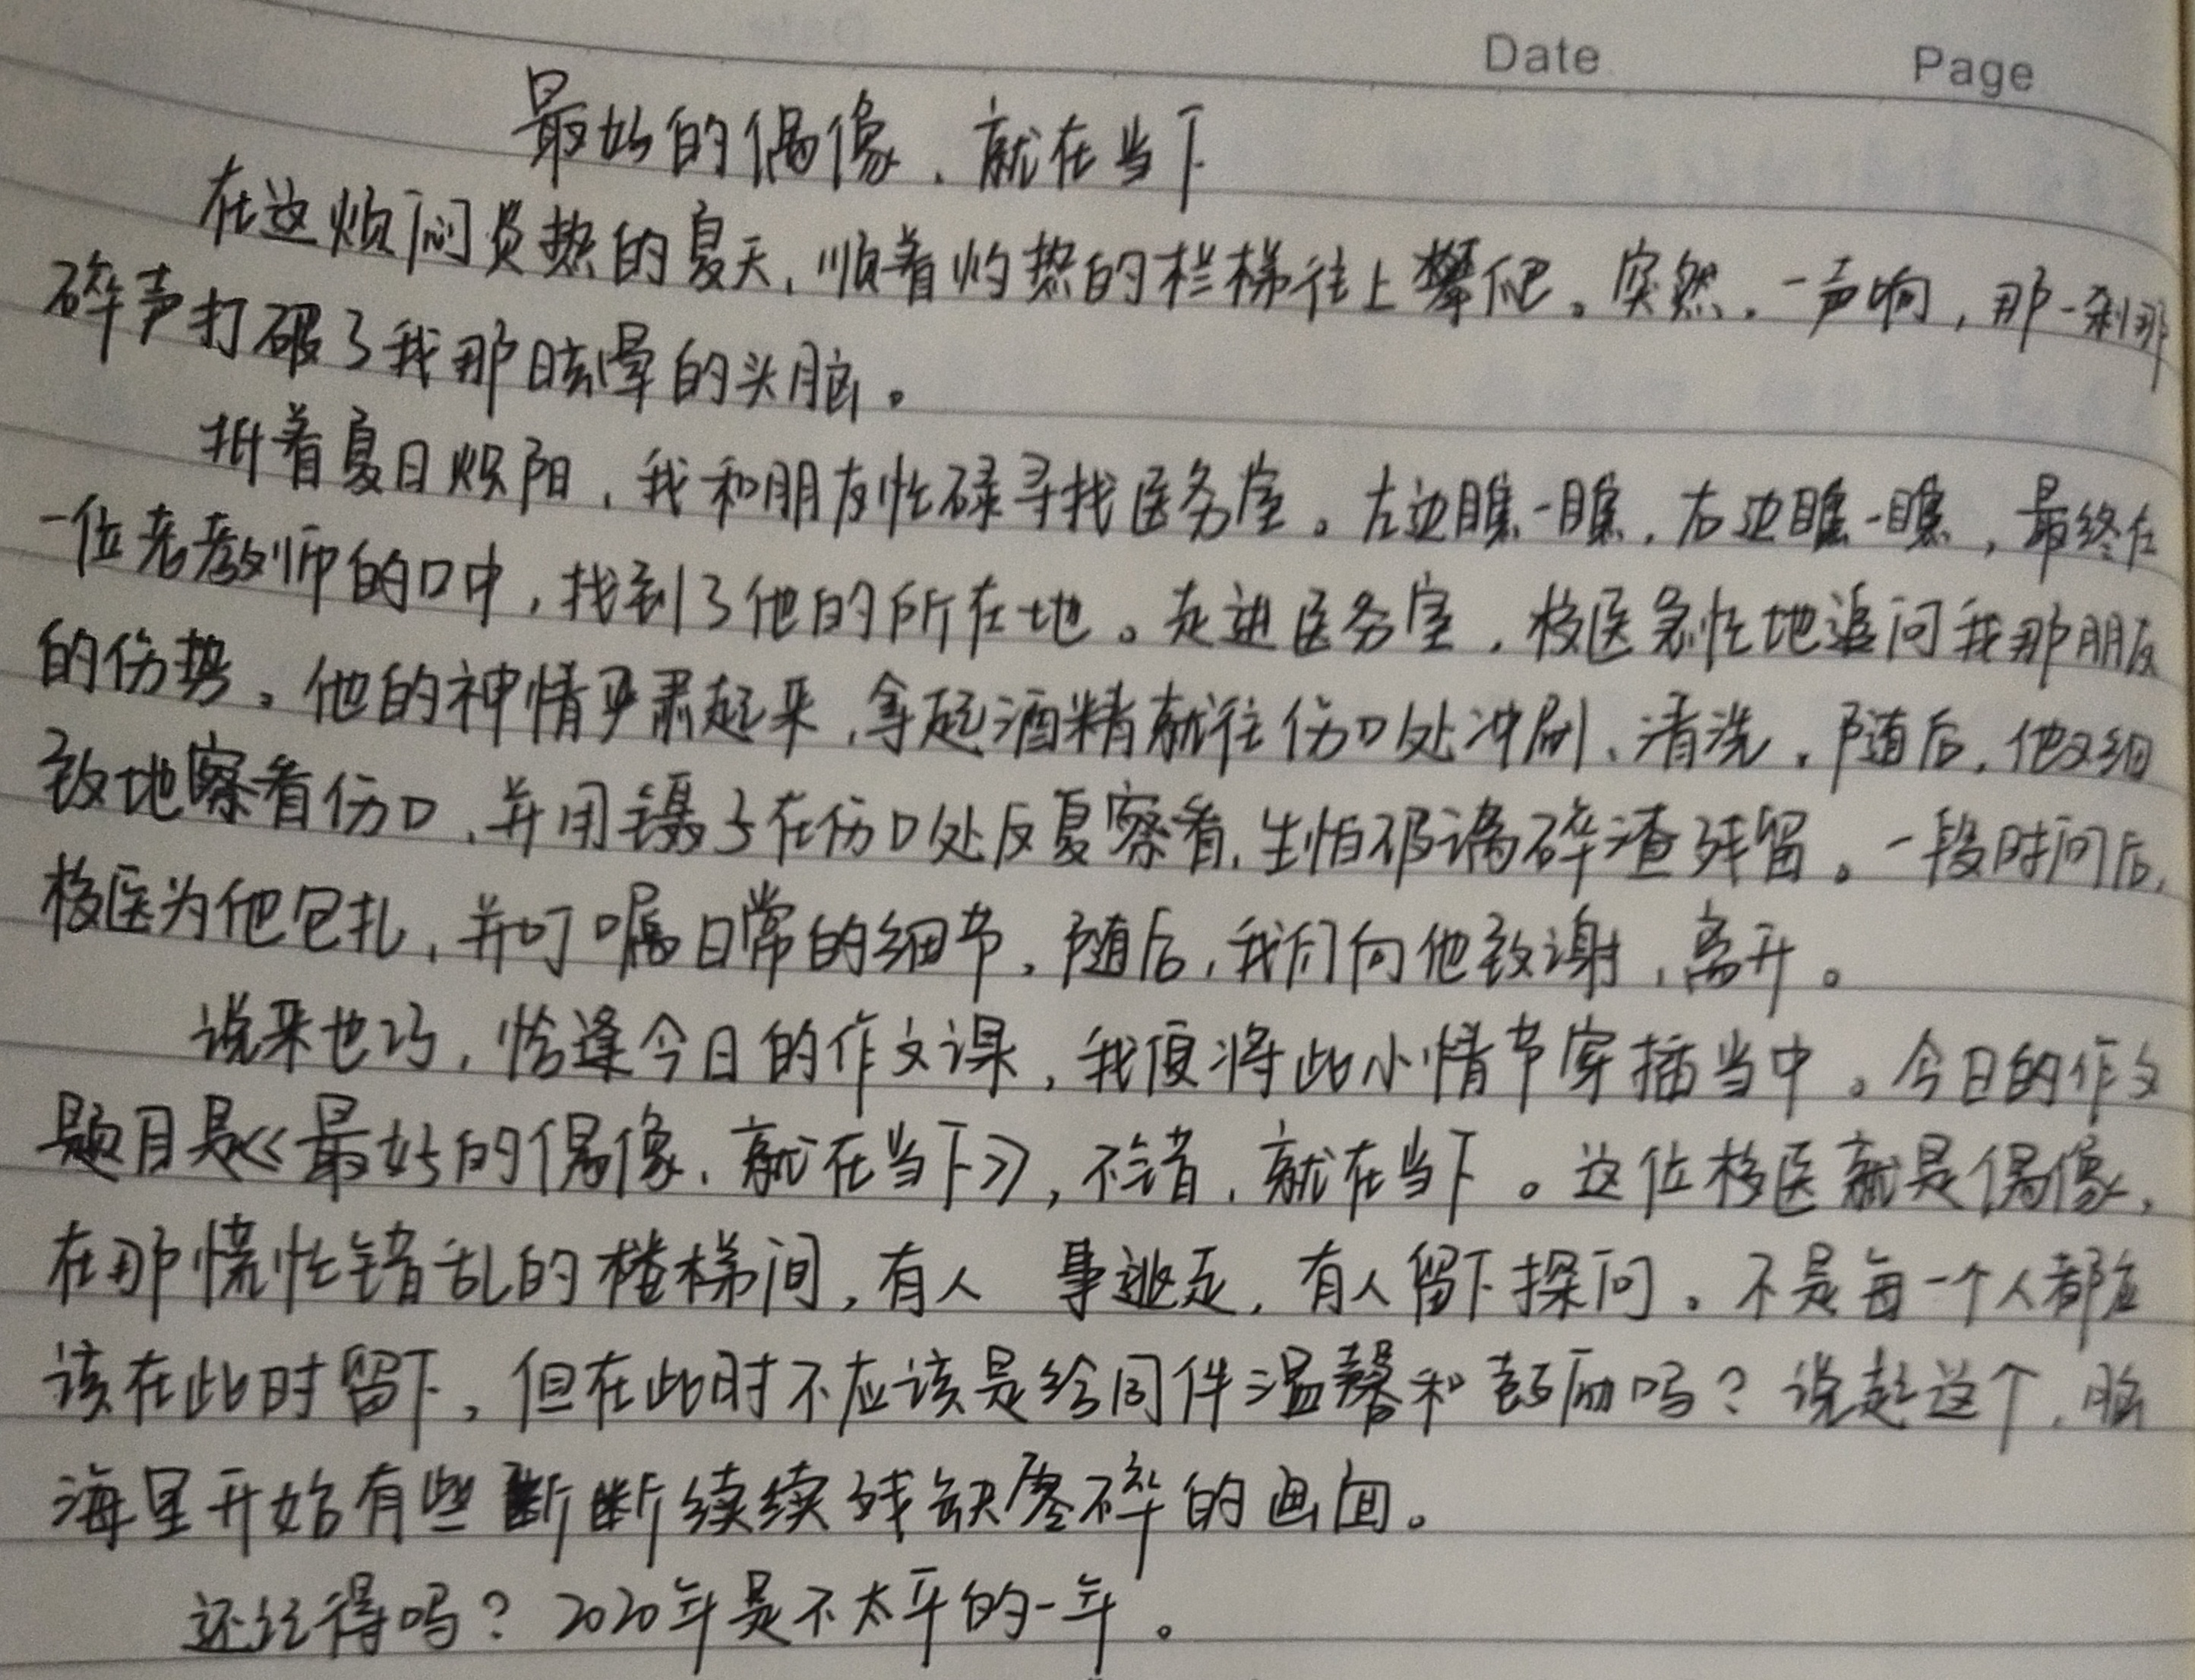 Date Page
最好的偶像，就在当下
在这烦闷炎热的夏天，顺着灼热的栏梯往上攀爬。突然，一声响，那一刹那
碎声打破了我那眩晕的头脑。
拼着夏日炽阳，我和朋友忙碌寻找医务室。左边瞧一瞧，右边瞧一瞧，最终在
一位老教师的口中，找到了他的所在地。走进医务室，校医急忙地追问我那朋友
的伤势。他的神情严肃起来，拿起酒精就往伤口处冲刷、清洗，随后，他又细
致地察看伤口，并用镊子在伤口处反复察看，生怕玻璃碎渣残留。一段时间后，
校医为他包扎，并叮嘱日常的细节，随后，我们向他致谢，离开。
说来也巧，恰逢今日的作文课，我便将此小情节穿插当中。今日的作文
题目是《最好的偶像，就在当下》，不错，就在当下。这位校医就是偶像，
在那慌忙错乱的楼梯间，有人 事逃走，有人留下探问。不是每一个人都应
该在此时留下，但在此时不应该是给同伴温馨和鼓励吗？说起这个，脑
海里开始有些断断续续残缺零碎的画面。
还记得吗？2020年是不太平的一年。